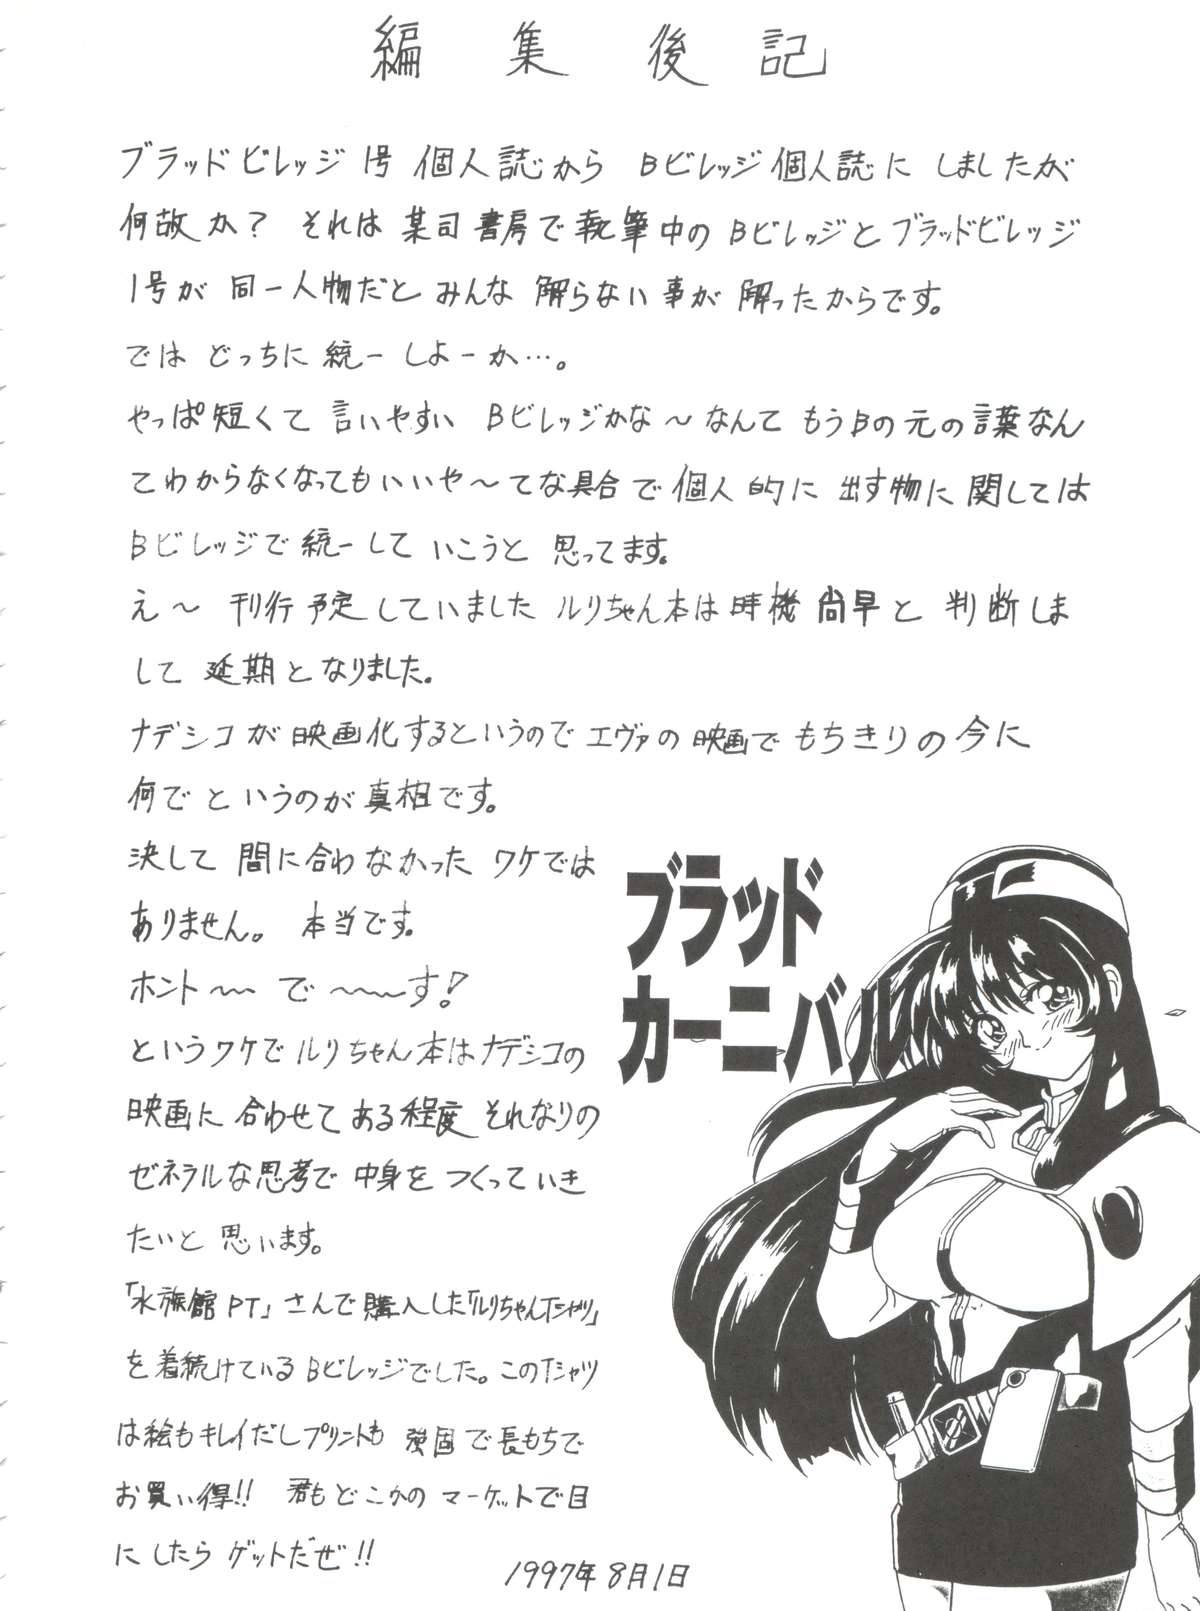 編集後記
ブラッドビレッジ1号 個人誌から Bビレッジ個人誌に しましたが
何故か? それは 某司書房で執筆中の Bビレッジとブラッドビレッジ
1号が 同一人物だと みんな 解らない事が 解ったからです。
では どっちに 統一 しよーか…。
やっぱ短くて 言いやすい Bビレッジかな〜なんて もうBの元の言葉なん
てわからなくなってもいいや〜てな具合で個人的に 出す物に関しては
Bビレッジで統一して いこうと 思ってます。
え〜 刊行予定していました ルリちゃん本は時機尚早と 判断しま
して 延期となりました。
ナデシコが映画化するというのでエヴァの映画でもちきりの今に
何で というのが真相です。
決して 間に合わなかった ワケでは
ありません。 本当です。
ホント〜〜 で 〜〜〜す!
というワケで ルリちゃん本はナデシコの
映画に 合わせて ある程度 それなりの
ゼネラルな思考で 中身を つくっていき
たいと 思います。
「水族館PT」さんで購入した「ルリちゃんTシャツ」
を着続けているBビレッジでした。このTシャツ
は絵もキレイだしプリントも 強固で長もちで
お買い得!! 君もどこかの マーケットで目
に したら ゲットだぜ!!
1997年8月1日
ブラッド
カーニバル